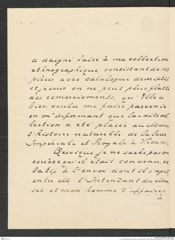 a daigné faire à ma collection
ethnographique consistante de
pièces avec catalogue
et je suis on ne peut plus
des remerciements, qu'Elle a
bien voulu me faire parvenir
en m'informant que la dite col-
lection a été placée au
d'histoire naturelle de la Cour
Impériale et Royale à Vienne.
Quoique je ne sache pas
ce qu'il était convenu
à l'envoi dont il s'agit
entre l'Intendant du
et mon homme d'affaires